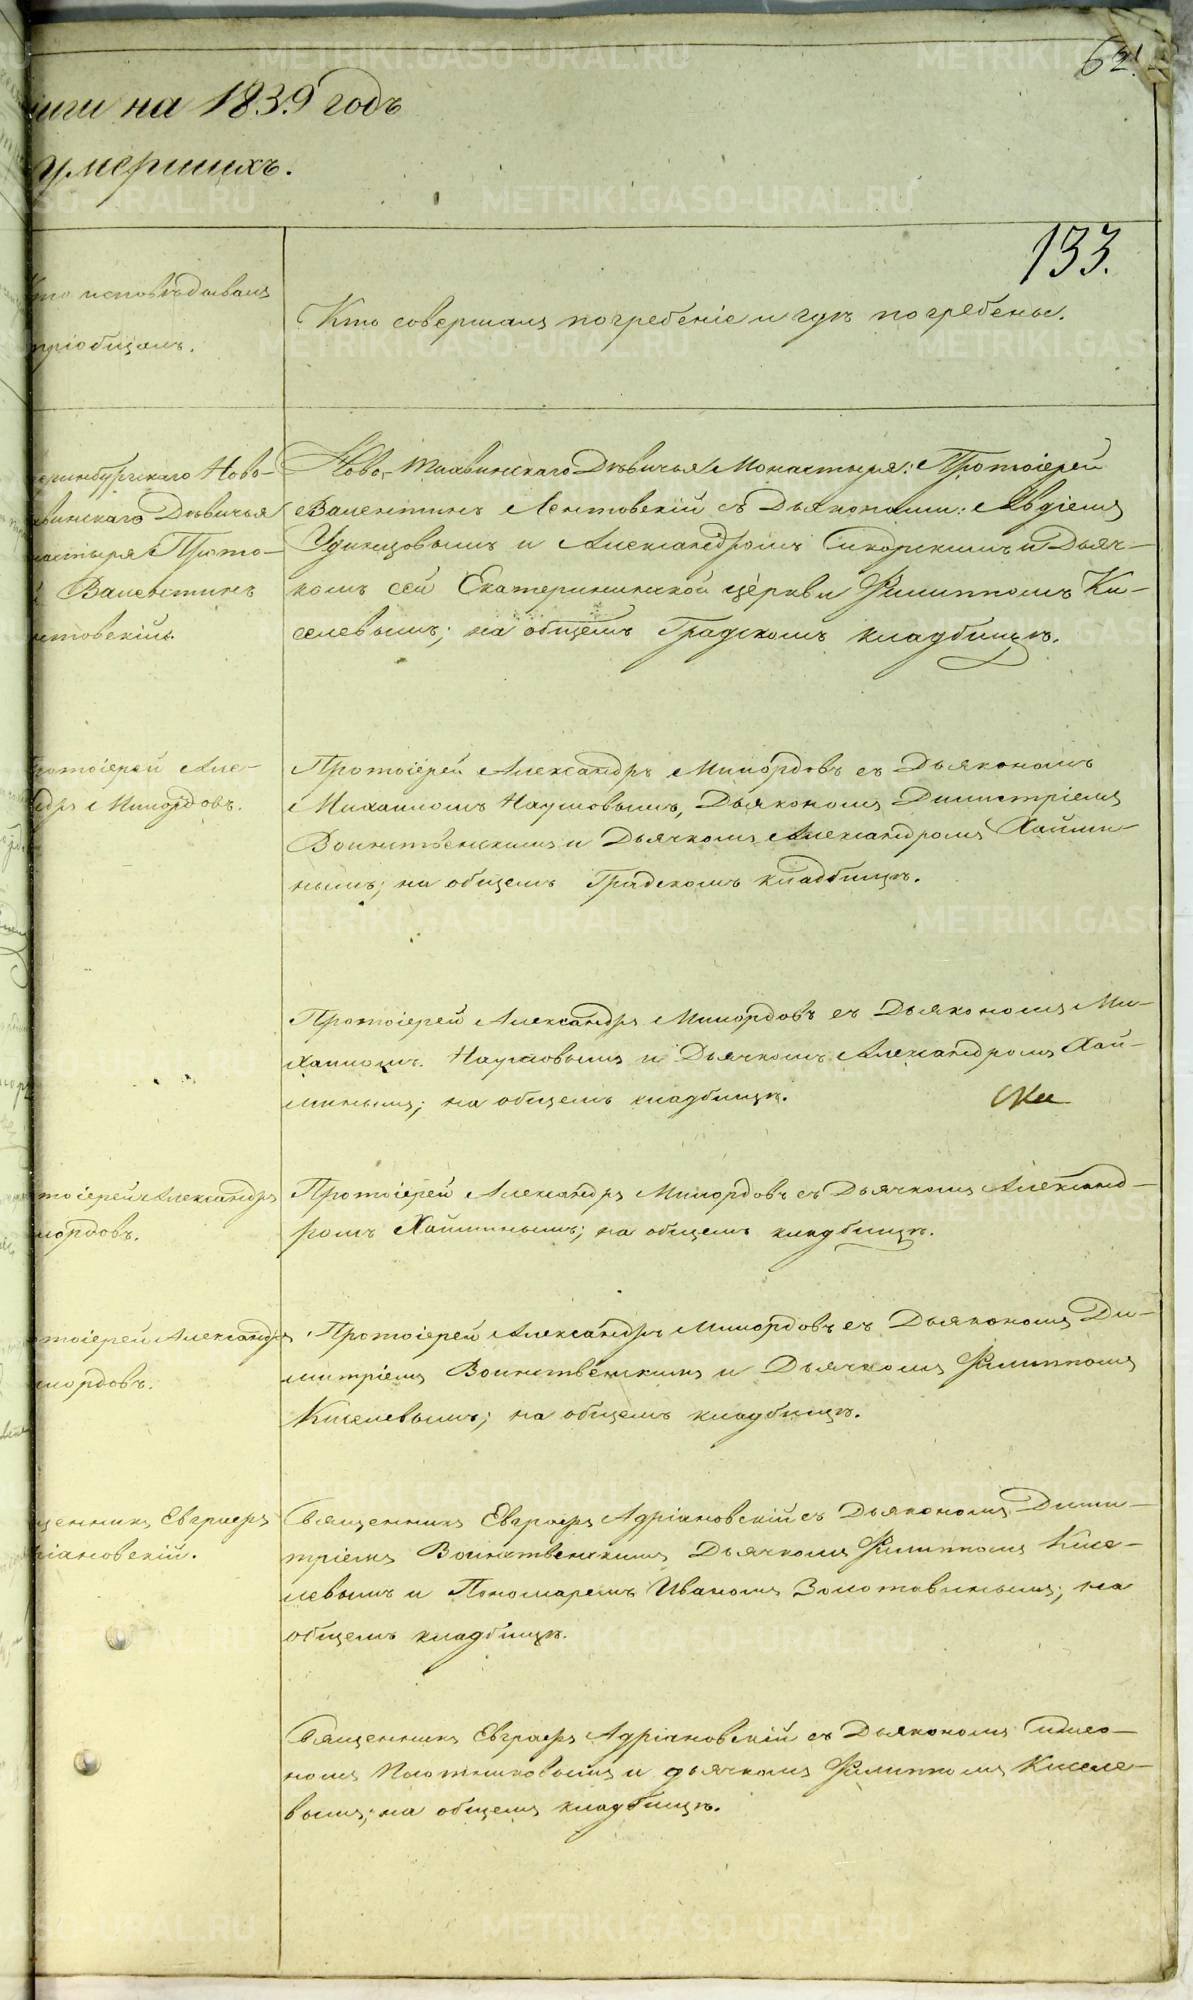 62.
иги на 1839 годъ
умершихъ.
133.
то исповѣдывалъ
пріобщалъ.
Кто совершалъ погребеніе и гдѣ погребены.
еринбургскаго Ново-
хвинскаго Дѣвичья
настыря Прото-
Валентинъ
нтовскій.
Ново-Тихвинскаго Дѣвичья Монастыря: Протоіерей
Валентинъ Лентовскій съ Дьяконами: Авдіемъ
Удинцовымъ и Александромъ Сикорскимъ и Дьяч-
комъ сей Екатерининской церкви Филиппомъ Ки-
селевымъ; на общемъ Градскомъ кладбищѣ.
ротоіерей Але-
ндръ Милордовъ.
Протоіерей Александръ Милордовъ съ Дьякономъ
Михаиломъ Наумовымъ, Дьякономъ Димитріемъ
Воинственскимъ и Дьячкомъ Александромъ Хайми-
нымъ; на общемъ Градскомъ кладбищѣ.
Протоіерей Александръ Милордовъ съ Дьякономъ Ми-
хаиломъ Наумовымъ и Дьячкомъ Александромъ Хай-
минымъ; на общемъ кладбищѣ.
тоіерей Александръ
лордовъ.
Протоіерей Александръ Милордовъ съ Дьячкомъ Александ-
ромъ Хайминымъ; на общемъ кладбищѣ.
тоіерей Александръ
лордовъ.
Протоіерей Александръ Милордовъ съ Дьякономъ Ди-
митріемъ Воинственскимъ и Дьячкомъ Филиппомъ
Киселевымъ; на общемъ кладбищѣ.
щенникъ Евграфъ
ріановскій.
Священникъ Евграфъ Адріановскій съ Дьякономъ Дими-
тріемъ Воинственскимъ Дьячкомъ Филиппомъ Кисе-
левымъ и Пономаремъ Иваномъ Золотавинымъ; на
общемъ кладбищѣ.
Священникъ Евграфъ Адріановскій съ Дьякономъ Симео-
номъ Плотниковымъ и дьячкомъ Филиппомъ Киселе-
вымъ; на общемъ кладбищѣ.
METRIKI.GASO-URAL.RU